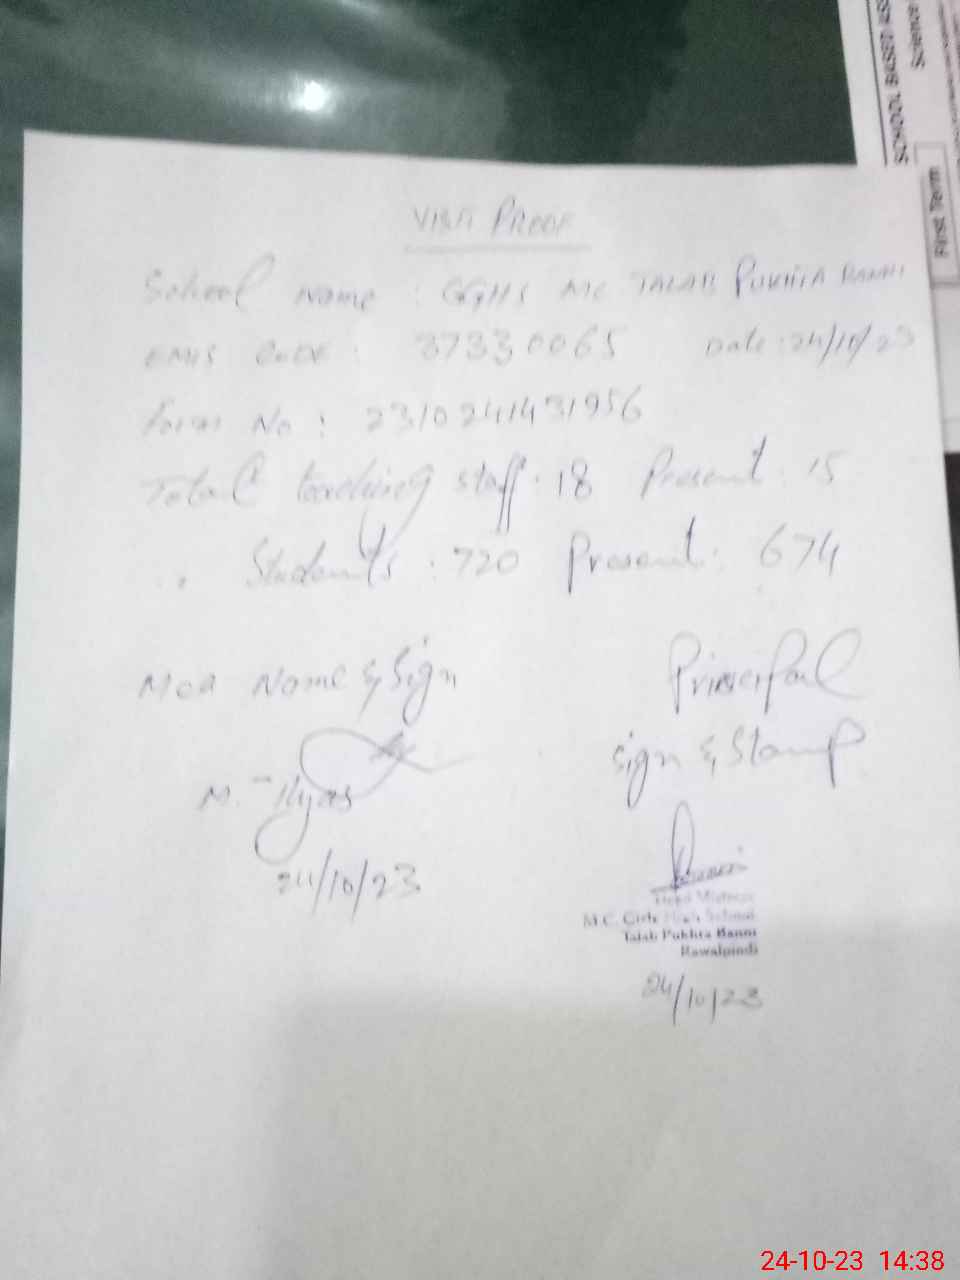 VISIT PROOF
School Name : GGHS MC TALAB PUKHTA BANNI
EMIS CODE : 37330065 Date : 24/10/23
Form No : 2310241431956
Total teaching staff : 18 Present : 15
" Students : 720 Present : 674
MEA Name & Sign
Principal
Sign & Stamp
M. Ilyas
24/10/23
Head Mistress
M.C. Girls High School
Talab Pukhta Banni
Rawalpindi
24/10/23
SCHOOL BASED
Science
First Term
24-10-23 14:38